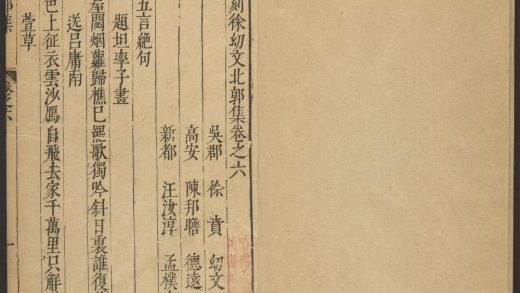 刻徐幼文北郭集卷之六
吳郡 徐 賁 幼文
高安 陳邦瞻 德遠
新都 汪汝淳 孟樸
五言絕句
題坦率子畫
屋閟烟蘿歸樵已罷歌獨吟斜日裏誰復
送呂庸南
色上征衣雲沙鴈自飛去家千萬里只解
萱草
集 卷之六 一